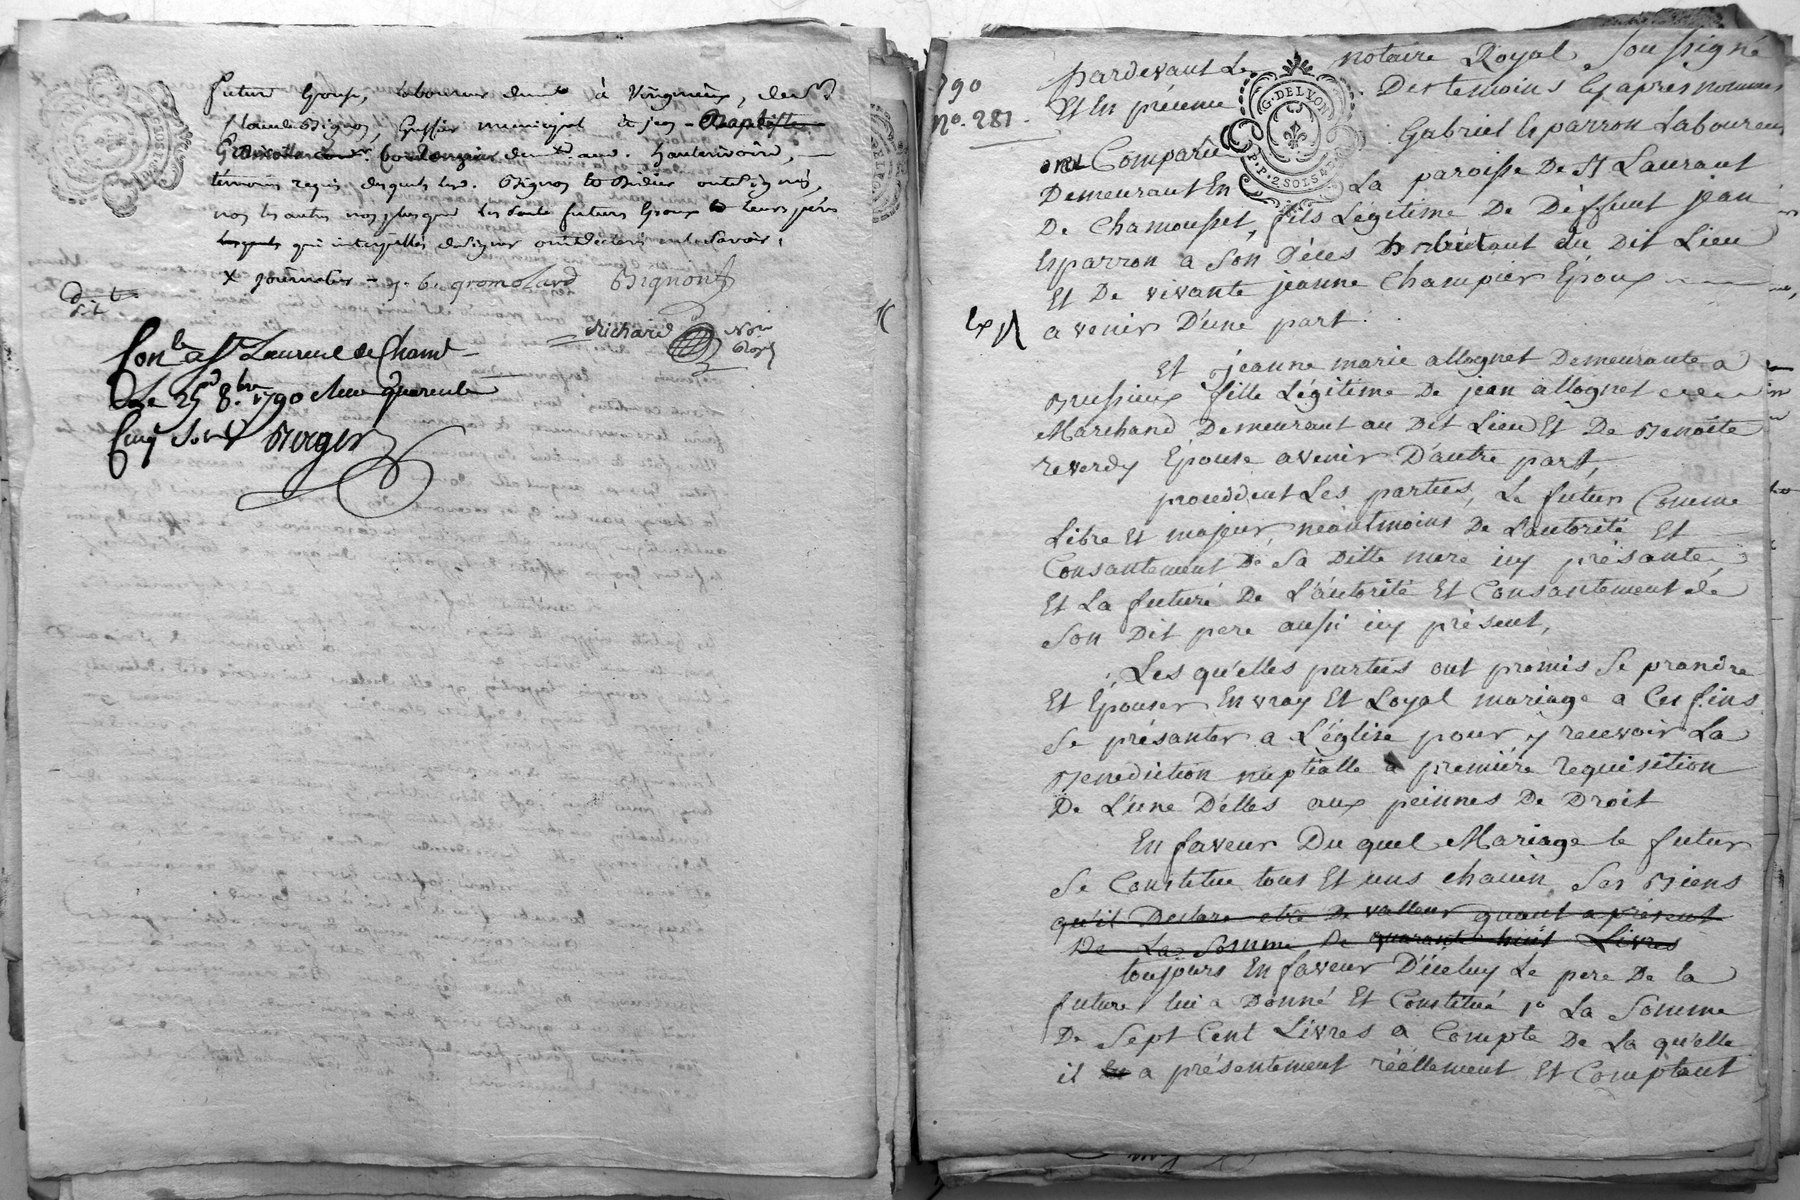 futur Epoux, laboureur demt. à Virigneux, de Sr.
Claude Bignon, Greffier municipal et jean-Baptiste
demt. aud. Hauterivoire,
témoins requis desquels led. Bignon et ont signés,
non les autres non plus que lesdits futurs Epoux & leurs pères
lesquels qui interpellés de signer ont déclaré ne le savoir,
x journalier - j. b. gromolard Bignon
dit
Richard
Not.
Royal
Conlé a St. Laurent de Cham-
le 25 8bre 1790 Reçu quarente
Cinq sols Berger
G. DE LYON
P. P. 2 SOLS 4 D
790
no. 281
pardevant Le notaire Royal soussigné
Et En présence Des temoins Cy apres nommes
Comparu Gabriel Esparron Laboureur
Demeurant En La paroisse De St Laurant
De Chamousset, fils Légitime De Déffunt jean
Esparron a Son Décès habitant du Dit Lieu
Et De vivante jeanne Champier Epoux
a venir D'une part.
Exp
Et jeanne marie allognet Demeurante a
Brussieux fille Légitime De jean allognet
Marchand Demeurant au Dit Lieu Et De Benoite
reverdy Epouse avenir D'autre part,
procédent Les parties, Le futur Comme
Libre Et majeur, néantmoins De Lautorité Et
Consantement De Sa Ditte mere icy présante,
Et La future De L'autorité Et Consantement de
Son Dit pere aussi icy présent,
Les qu'elles parties ont promis Se prandre
Et Epouser En vray Et Loyal mariage a Ces fins
Se présanter a L'église pour y recevoir La
Benediction nuptialle a première requisition
De L'une D'elles aux peinnes De Droit
En faveur Du quel Mariage le futur
Se Constitue tous Et uns chacun Ses Biens
qu'il Declare etre De valleur quant a présent
De La Somme De quarante huit Livres
toujours En faveur D'iceluy Le pere De la
future lui a Donné Et Constitué 1° La Somme
De Sept Cent Livres a Compte De La qu'elle
il a présentement réellement Et Comptant